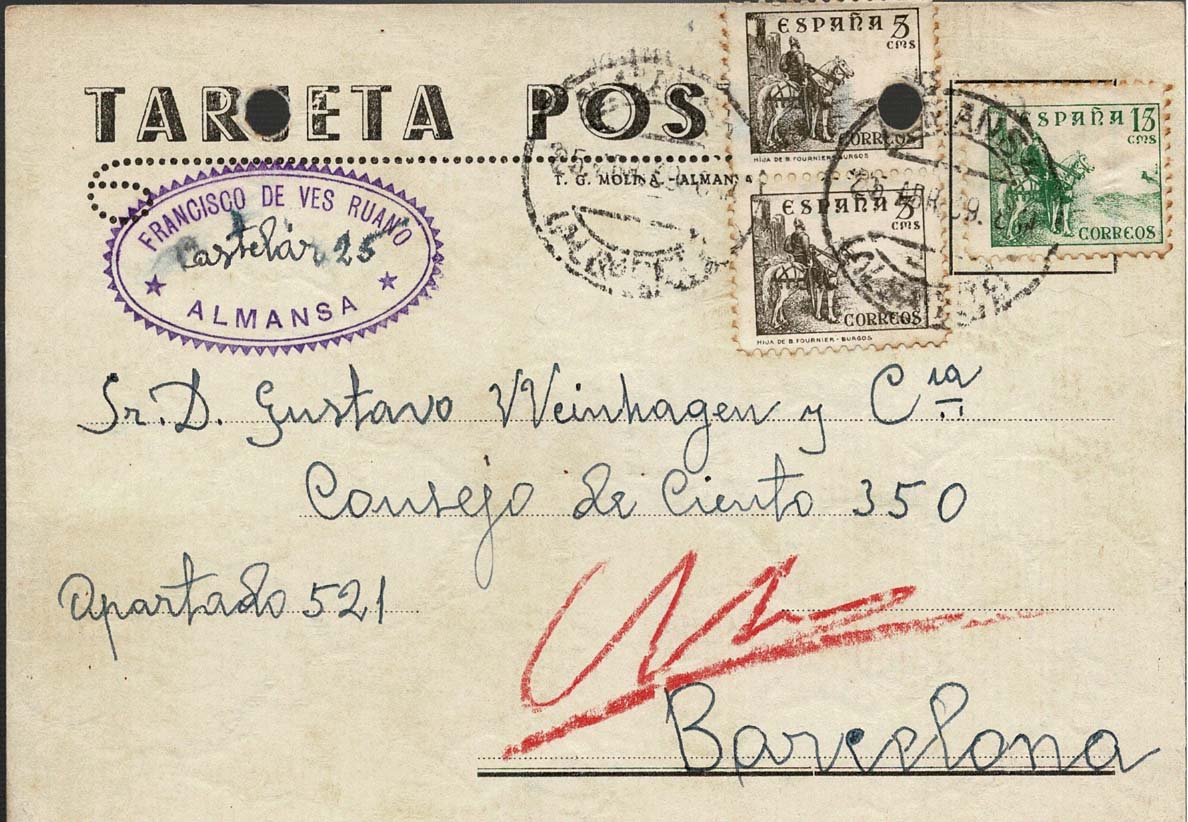 TARJETA POS
T. G. MOLINA.-(ALMANSA
FRANCISCO DE VES RUANO
Castelár 25
ALMANSA
ESPAÑA 5 CMS
CORREOS
HIJA DE B. FOURNIER - BURGOS
ESPAÑA 5 CMS
CORREOS
HIJA DE B. FOURNIER - BURGOS
ESPAÑA 15 CMS
CORREOS
25 ABR 39
Sr. D. Gustavo Weinhagen y Cía
Consejo de Ciento 350
Apartado 521
Barcelona